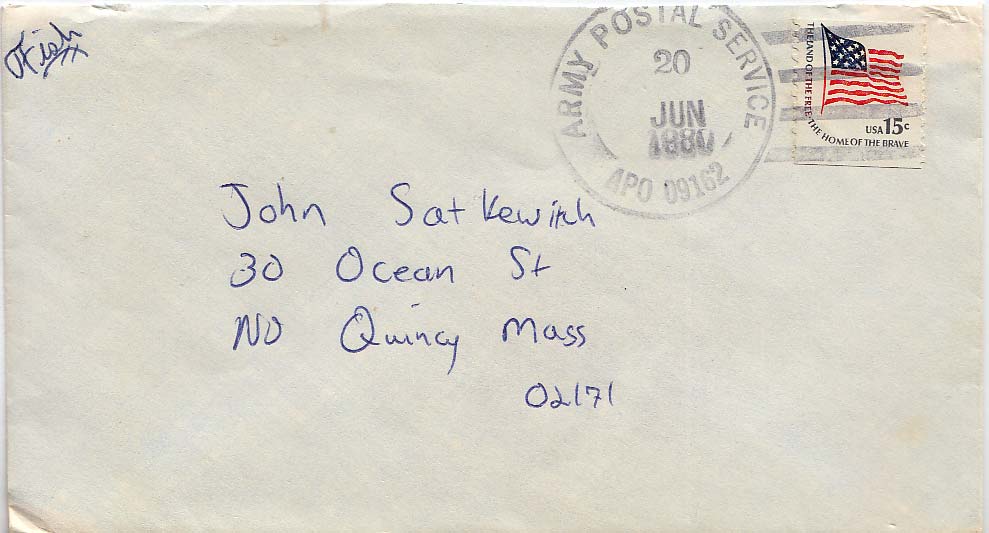 Fish
ARMY POSTAL SERVICE
20
JUN
1980
APO 09162
THE LAND OF THE FREE · THE HOME OF THE BRAVE
USA 15c
John Satkewich
30 Ocean St
NO Quincy Mass
02171